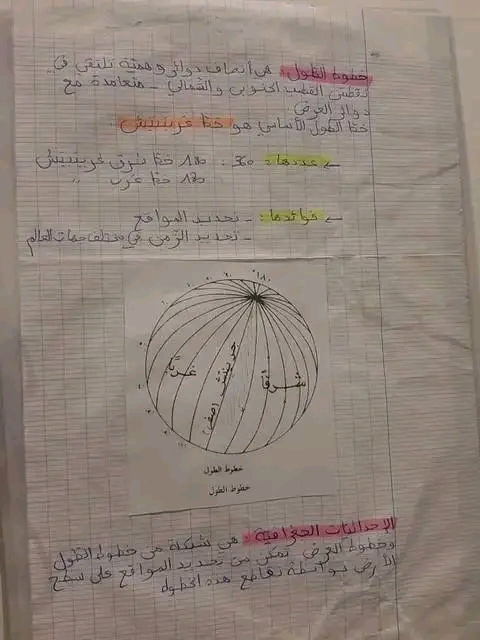 خطوط الطول: هي أنصاف دوائر وهمية تلتقي في
نقطتي القطب الجنوبي والشمالي - متعامدة مع
دوائر العرض
خط الطول الأساسي هو خط غرينيتش.
← عددها: 360: 180 خط شرق غرينيتش
180 خط غرب "
← فوائدها: - تحديد المواقع
- تحديد الزمن في مختلف جهات العالم
°١٨٠
غربًا
شرقًا
خط الطول
خطوط الطول
الإحداثيات الجغرافية: هي شبكة من خطوط الطول
وخطوط العرض تمكن من تحديد المواقع على سطح
الأرض بواسطة تقاطع هذه الخطوط